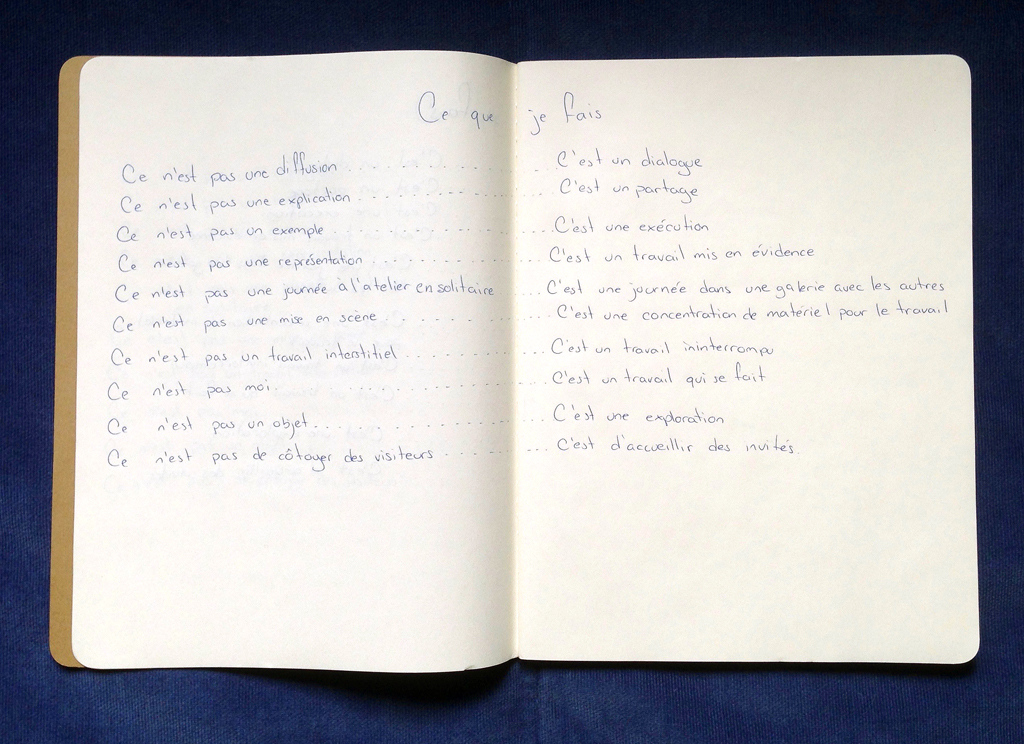 Ce que je fais
Ce n'est pas une diffusion ........... C'est un dialogue
Ce n'est pas une explication ........... C'est un partage
Ce n'est pas un exemple ........... C'est une exécution
Ce n'est pas une représentation ........... C'est un travail mis en évidence
Ce n'est pas une journée à l'atelier en solitaire ... C'est une journée dans une galerie avec les autres
Ce n'est pas une mise en scène ........... C'est une concentration de matériel pour le travail
Ce n'est pas un travail interstitiel ........... C'est un travail ininterrompu
Ce n'est pas moi ........... C'est un travail qui se fait
Ce n'est pas un objet ........... C'est une exploration
Ce n'est pas de côtoyer des visiteurs ........... C'est d'accueillir des invités.